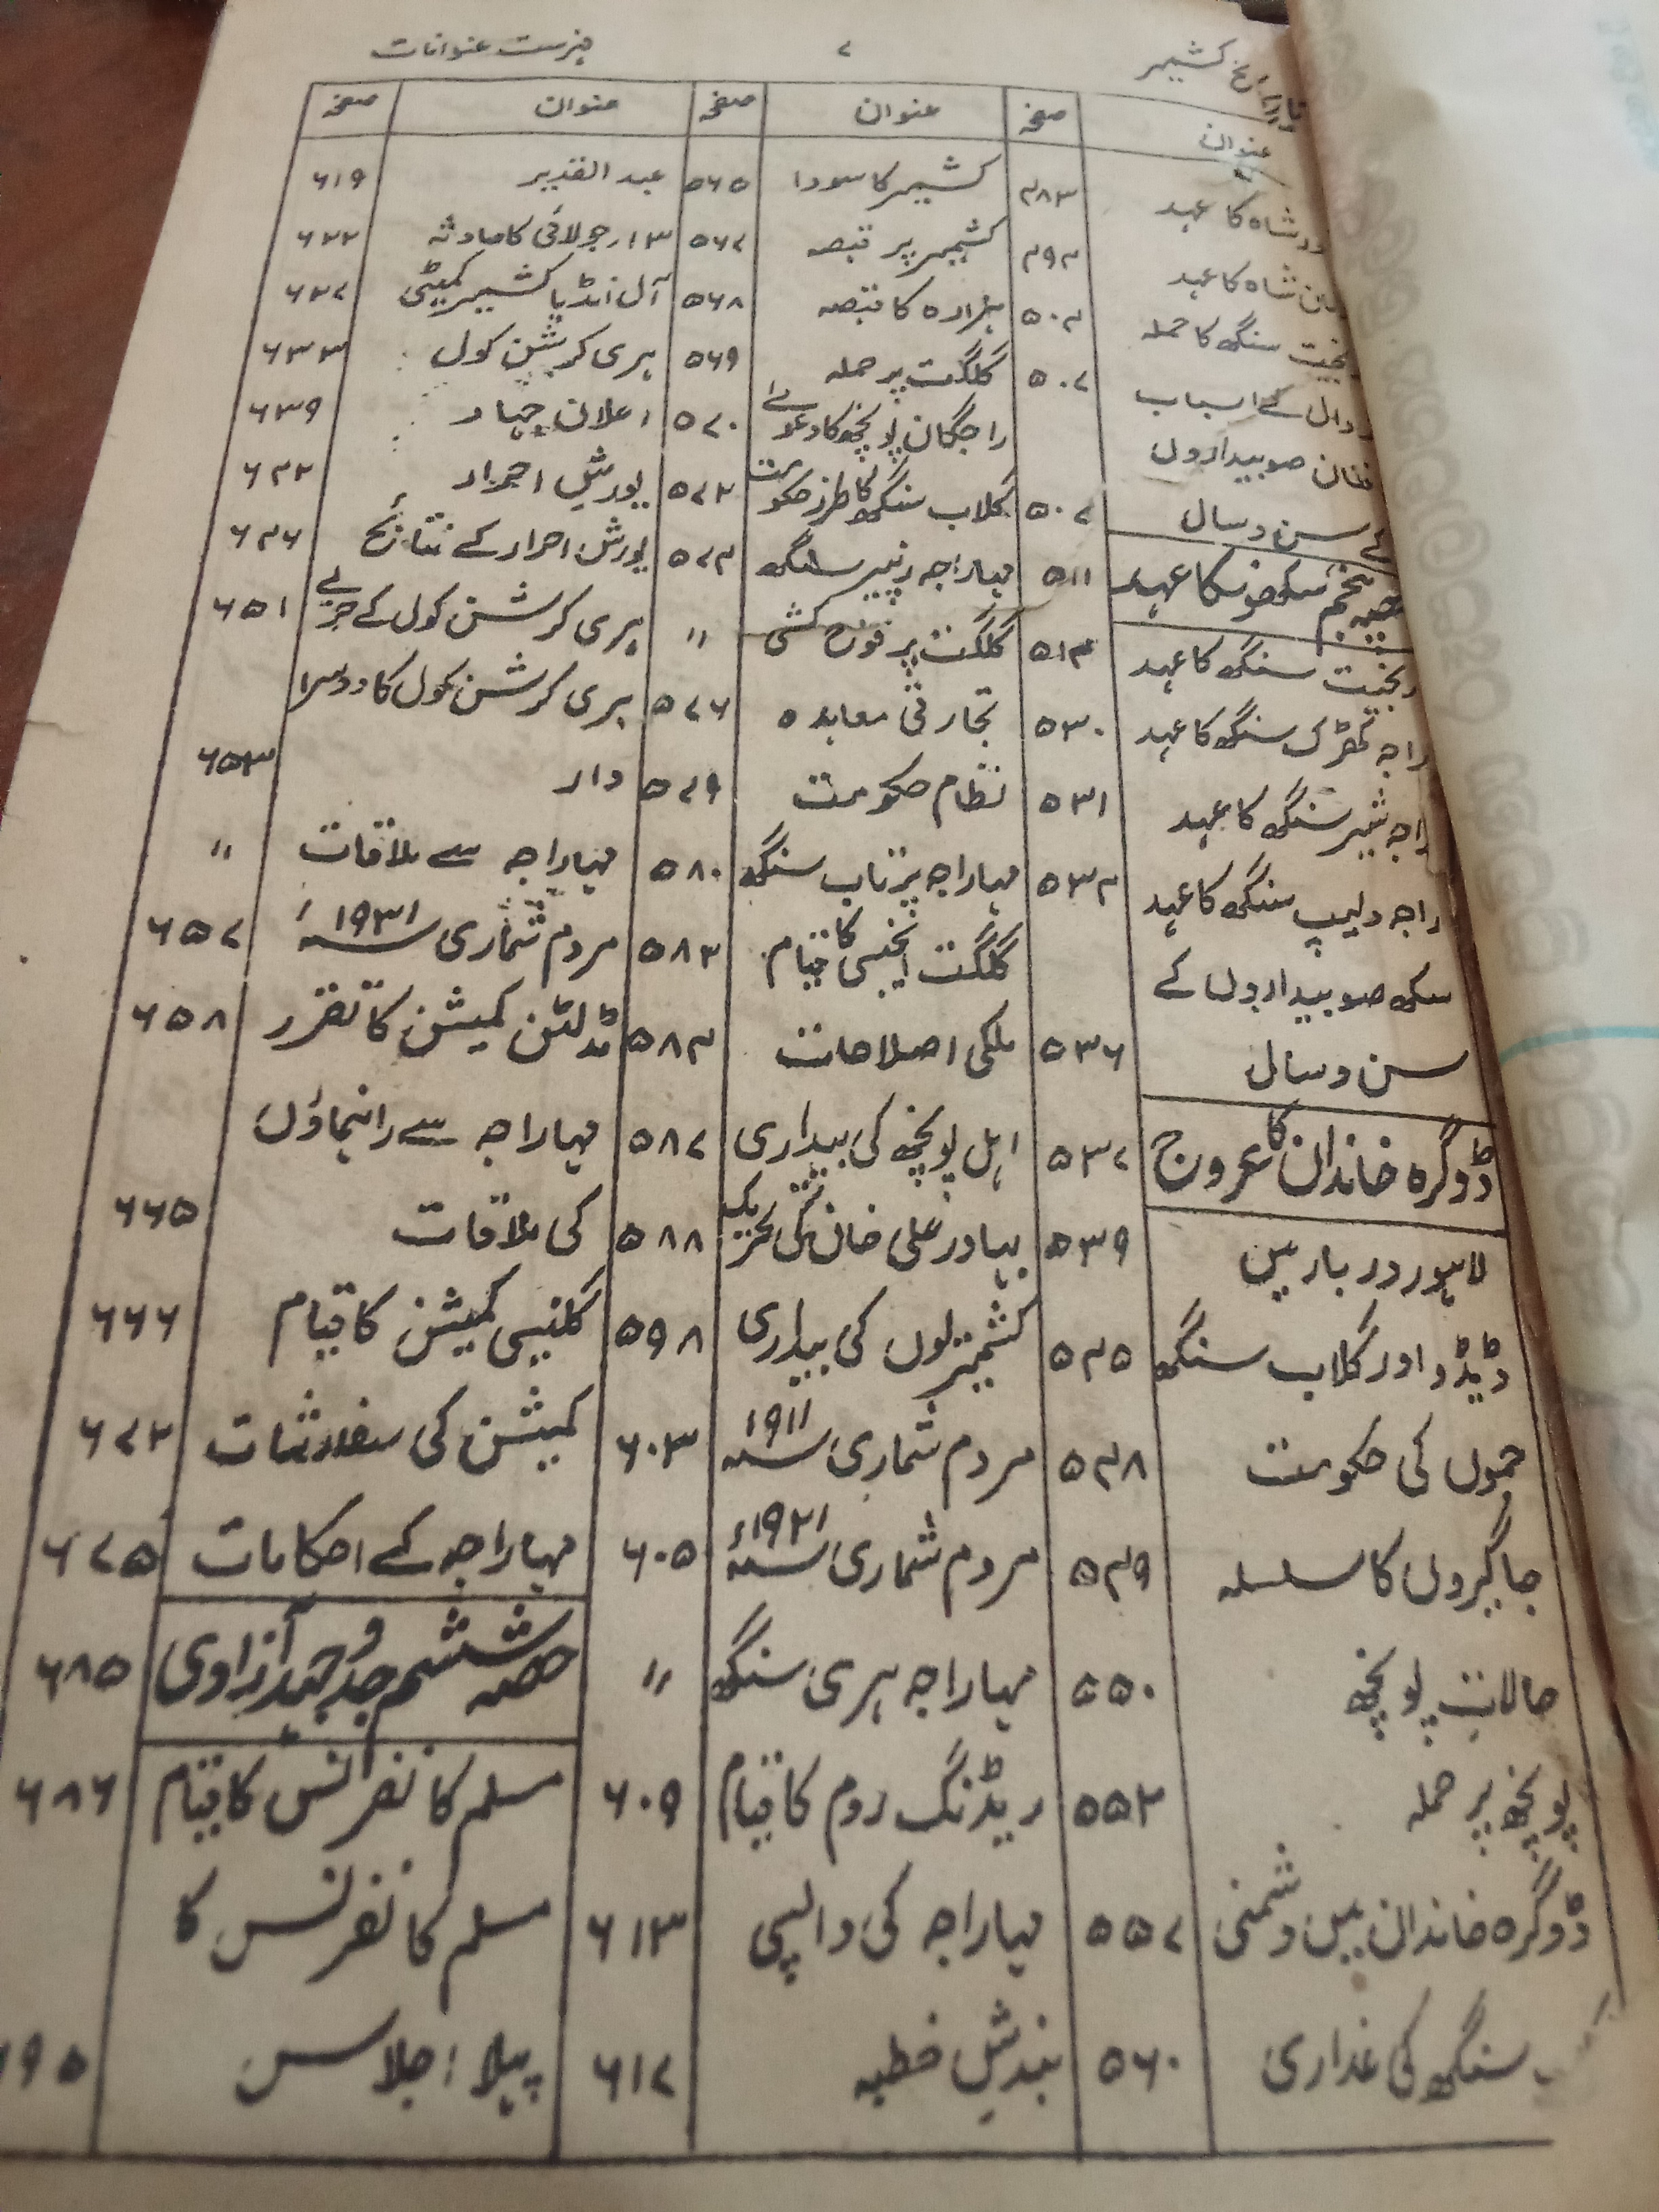 تاریخ کشمیر ۷ فہرست عنوانات
عنوان صفحہ
شاہ کا عہد ۴۸۳
شاہ کا عہد ۴۹۴
سنگھ کا حملہ ۵۰۴
کے اسباب ۵۰۷
صوبیداروں
کے سن و سال ۵۰۷
پنجم سکھوں کا عہد ۵۱۱
رنجیت سنگھ کا عہد ۵۱۴
راجہ کھڑک سنگھ کا عہد ۵۳۰
راجہ شیر سنگھ کا عہد ۵۳۱
راجہ دلیپ سنگھ کا عہد ۵۳۴
سکھ صوبیداروں کے
سن و سال ۵۳۶
ڈوگرہ خاندان کا عروج ۵۳۷
لاہور دربار میں ۵۳۹
ڈیڈو اور گلاب سنگھ ۵۴۵
جموں کی حکومت ۵۴۸
جاگیروں کا سلسلہ ۵۴۹
حالاتِ پونچھ ۵۵۰
پونچھ پر حملہ ۵۵۲
ڈوگرہ خاندان میں دشمنی ۵۵۷
سنگھ کی غداری ۵۶۰
عنوان صفحہ
کشمیر کا سودا ۵۶۵
کشمیر پر قبضہ ۵۶۷
ہزارہ کا قبضہ ۵۶۸
گلگت پر حملہ ۵۶۹
راجگان پونچھ کا دعوےٰ ۵۷۰
گلاب سنگھ کا طرز حکومت ۵۷۲
مہاراجہ رنبیر سنگھ ۵۷۴
گلگت پر فوج کشی ״
تجارتی معاہدہ ۵۷۶
نظام حکومت ۵۷۹
مہاراجہ پرتاب سنگھ ۵۸۰
گلگت ایجنسی کا قیام ۵۸۲
ملکی اصلاحات ۵۸۴
اہل پونچھ کی بیداری ۵۸۷
بہادر علی خان کی تحریک ۵۸۸
کشمیریوں کی بیداری ۵۹۸
مردم شماری ۱۹۱۱ ۶۰۳
مردم شماری ۱۹۲۱ء ۶۰۵
مہاراجہ ہری سنگھ ״
ریڈنگ روم کا قیام ۶۰۹
مہاراجہ کی واپسی ۶۱۳
بندش خطبہ ۶۱۷
عنوان صفحہ
عبد القدیر ۶۱۹
۱۳؍ جولائی کا حادثہ ۶۲۲
آل انڈیا کشمیر کمیٹی ۶۲۷
ہری کرشن کول ۶۳۳
اعلان جہاد ۶۳۹
یورش احرار ۶۴۲
یورش احرار کے نتائج ۶۴۶
ہری کرشن کول کے حربے ۶۵۱
ہری کرشن کول کا دوسرا
وار ۶۵۳
مہاراجہ سے ملاقات ״
مردم شماری ۱۹۳۱ء ۶۵۷
مڈلٹن کمیشن کا تقرر ۶۵۸
مہاراجہ سے راہنماؤں
کی ملاقات ۶۶۵
گلنسی کمیشن کا قیام ۶۶۶
کمیشن کی سفارشات ۶۷۲
مہاراجہ کے احکامات ۶۷۵
حصہ ششم جدوجہد آزادی ۶۸۵
مسلم کانفرنس کا قیام ۶۸۶
مسلم کانفرنس کا
پہلا اجلاس ۹۵